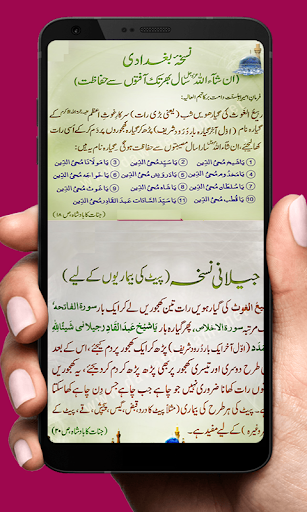 نسخۂ بغدادی
(ان شآءاللہ عزوجل سال بھر تک آفتوں سے حفاظت)
فرمانِ امیرِ اہلسنّت دامت برکاتہم العالیہ:
ربیع الغوث کی گیارھویں شب (یعنی بڑی رات) سرکارِ غوثِ اعظم کے
گیارہ نام (اوّل آخر گیارہ بار دُرود شریف) پڑھ کر گیارہ کھجوروں پر دم کر کے اُسی رات
ان شآءاللہ سارا سال مصیبتوں سے حفاظت ہوگی گیارہ نام یہ ہیں:
1 یَا شَیخ مُحیُّ الدِّین 2 یَا سَیِّد مُحیُّ الدِّین 3 یَا مَولَانَا مُحیُّ الدِّین
4 یَا مَخدُوم مُحیُّ الدِّین 5 یَا دَروَیش مُحیُّ الدِّین 6 یَا خَواجَه مُحیُّ الدِّین
7 یَا سُلطَان مُحیُّ الدِّین 8 یَا شَاہ مُحیُّ الدِّین 9 یَا غَوث مُحیُّ الدِّین
10 یَا قُطب مُحیُّ الدِّین 11 یَا سَیِّدَ السَّادَات عَبدَالقَادِر مُحیُّ الدِّین
(جنات کا بادشاہ ص ۱۸)
جیلانی نسخہ (پیٹ کی بیماریوں کے لیے)
ربیع الغوث کی گیارھویں رات تین کھجوریں لے کر ایک بار سورۃُ الفاتحہ
مرتبہ سورۃُ الاخلاص، پھر گیارہ بار یَا شَیخ عَبدَالقَادِر جیلانی شَیئًا لِلّٰہ
المدد (اوّل آخر ایک بار دُرود شریف) پڑھ کر ایک کھجور پر دم کیجئے، اس کے
بعد دوسری اور تیسری کھجور پر بھی پڑھ پڑھ کر دم کر دیجئے، یہ کھجوریں
راتوں رات کھانا ضروری نہیں جو چاہے جب چاہے جس دن چاہے کھا سکتا
ہے۔ پیٹ کی ہر طرح کی بیماری (مثلاً پیٹ کا درد، قبض، گیس، پیچش، قے، پیٹ کے
وغیرہ) کے لیے مفید ہے۔
(جنات کا بادشاہ، ص ۲۰)